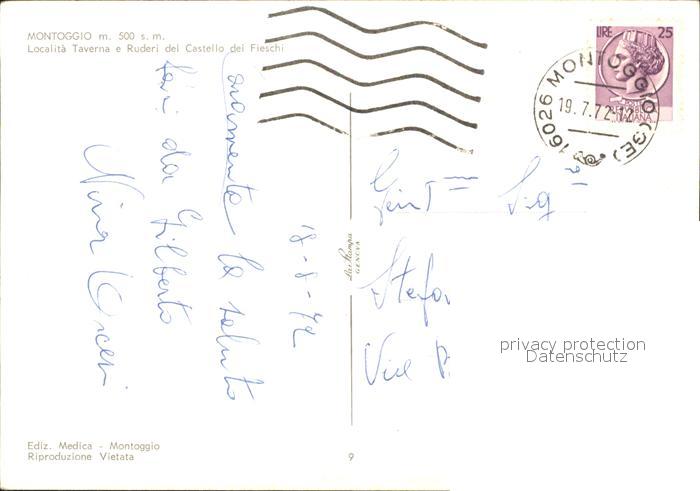 MONTOGGIO m. 500 s. m.
Località Taverna e Ruderi del Castello dei Fieschi
LIRE 25
REPUBBLICA ITALIANA
16026 MONTOGGIO (GE)
19.7.72-12
la saluto
da Gilberto
Nina
Gent.ma Sig.ra
Stefa
GENOVA
privacy protection
Datenschutz
Ediz. Medica - Montoggio
Riproduzione Vietata
9